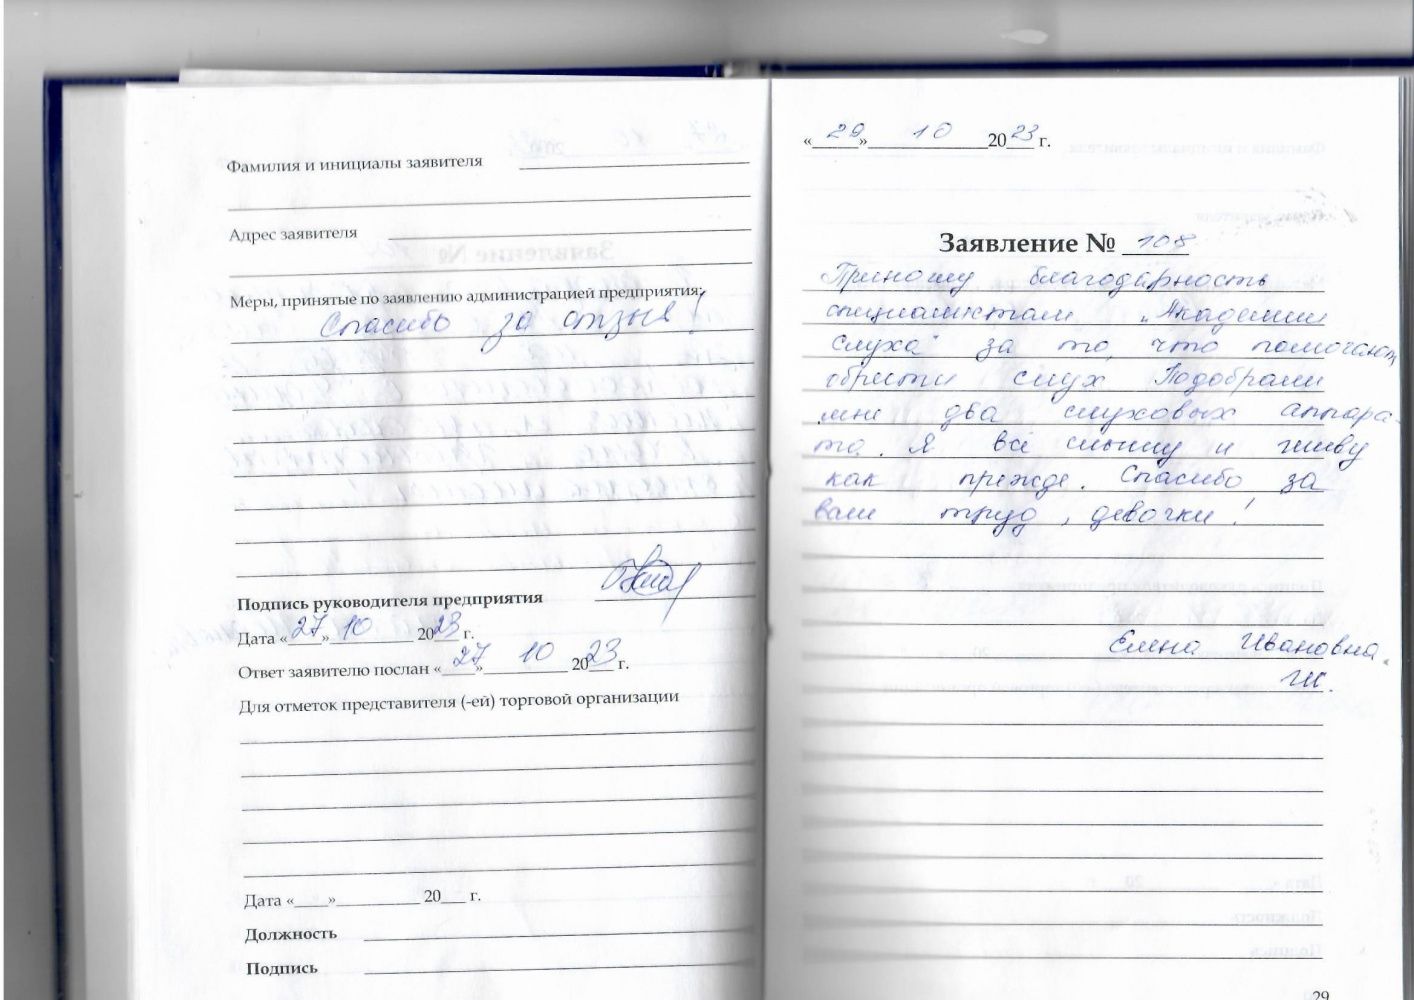 Фамилия и инициалы заявителя
Адрес заявителя
Меры, принятые по заявлению администрацией предприятия:
Спасибо за отзыв!
Подпись руководителя предприятия
Дата «27» 10 2023 г.
Ответ заявителю послан «27» 10 2023 г.
Для отметок представителя (-ей) торговой организации
Дата «____»__________ 20___ г.
Должность
Подпись
«29» 10 2023 г.
Заявление № 108
Приношу благодарность
специалистам „Академии
слуха" за то, что помогают
обрести слух Подобрали
мне два слуховых аппара-
та. Я всё слышу и живу
как прежде. Спасибо за
ваш труд, девочки!
Елена Ивановна.
29